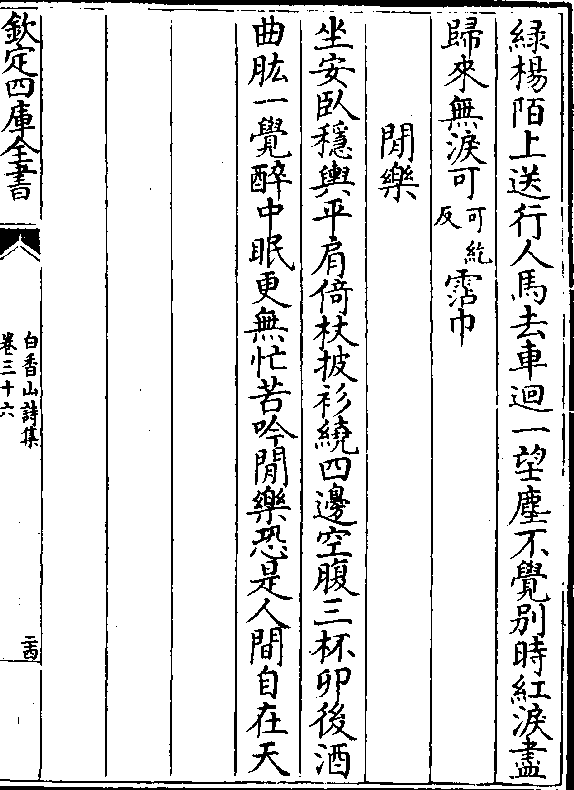 緑楊陌上送行人馬去車迴一望塵不覺别時紅淚盡
歸來無淚可可紇反霑巾
閒樂
坐安卧穩輿平肩倚杖披衫繞四邊空腹三杯卯後酒
曲肱一覺醉中眠更無忙苦吟閒樂恐是人間自在天
欽定四庫全書
白香山詩集
卷三十六
二十四